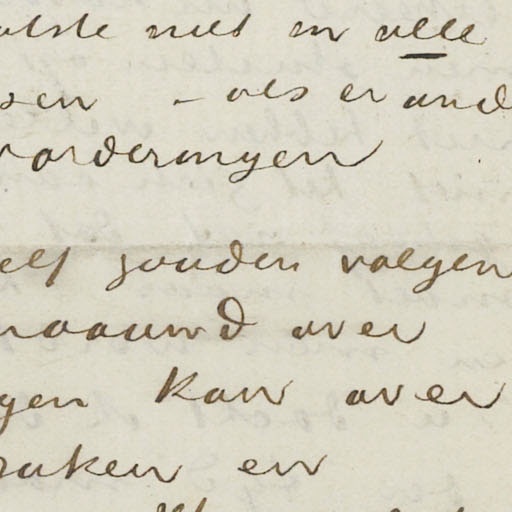 niet in alle
sen - als er and
vorderingen
elf zouden volgen
naauwd over
gen kan over
raken en